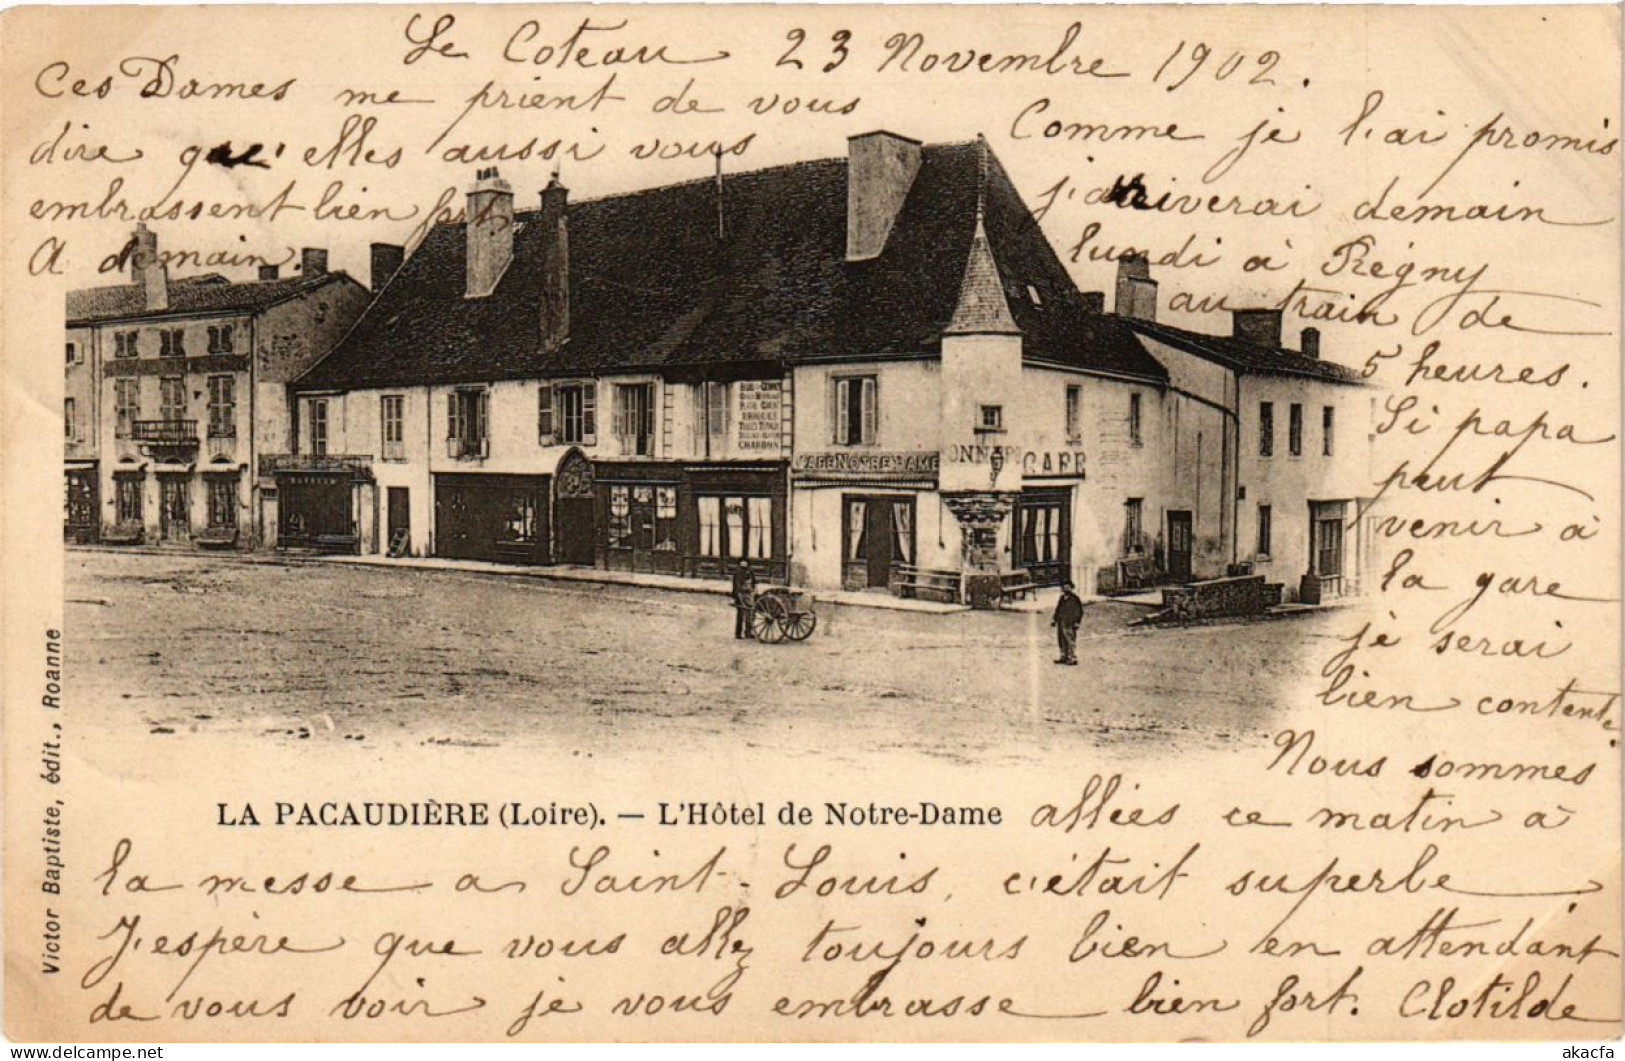 Le Coteau 23 Novembre 1902.
Comme je l'ai promis
j'arriverai demain
lundi à Régny
au train de
5 heures.
Si papa
peut
venir à
la gare
je serai
bien contente.
Nous sommes
allées ce matin à
la messe a Saint-Louis, c'était superbe
J'espère que vous allez toujours bien en attendant
de vous voir je vous embrasse bien fort. Clotilde
Ces Dames me prient de vous
dire qu'elles aussi vous
embrassent bien fort
A demain.
CAFE NOTRE DAME
CAFE
CHARBON
LA PACAUDIÈRE (Loire). — L'Hôtel de Notre-Dame
Victor Baptiste, édit., Roanne
akacfa
www.delcampe.net